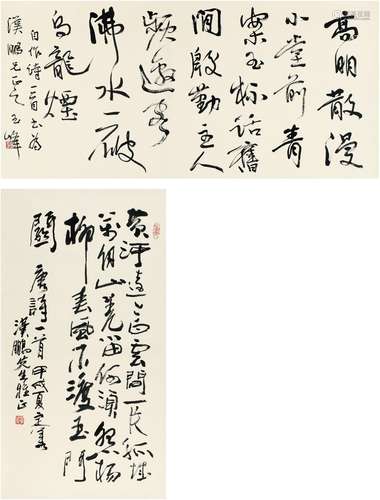 高明散漫
小堂前青
案玉杯話舊
間殷勤主人
頻邀客
沸水一破
烏龍煙
自作詩一首書為
漢鵬先生正之 玉峰
黃河遠上白雲間一片孤城
萬仞山羌笛何須怨楊
柳春風不渡玉門
關 唐詩一首 甲戌夏
漢鵬先生雅正